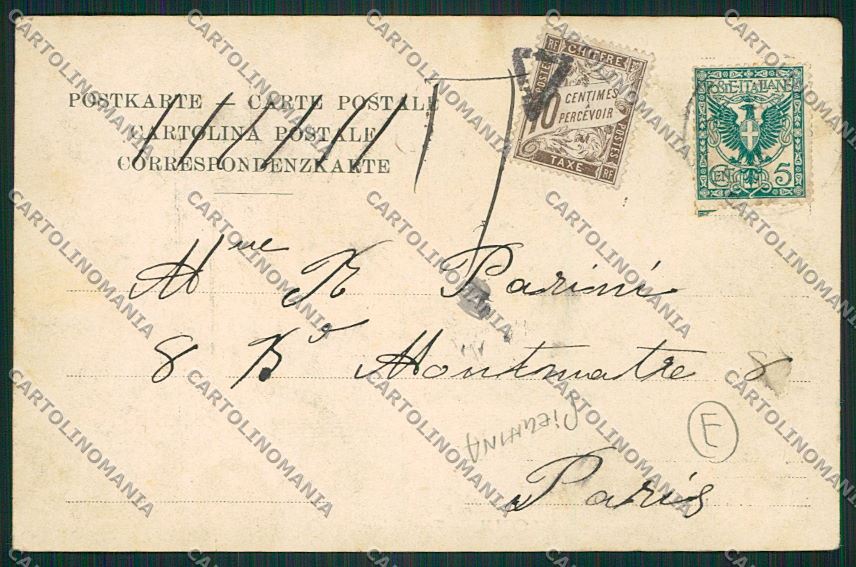 POSTKARTE — CARTE POSTALE
CARTOLINA POSTALE
CORRESPONDENZKARTE
T
RF CHIFFRE
POSTES
10 CENTIMES À PERCEVOIR
POSTES
TAXE RF
POSTE·ITALIANE
CENTESIMI 5
Mme R Parini
8 Bd Montmatre 8
Paris
E
CARTOLINOMANIA